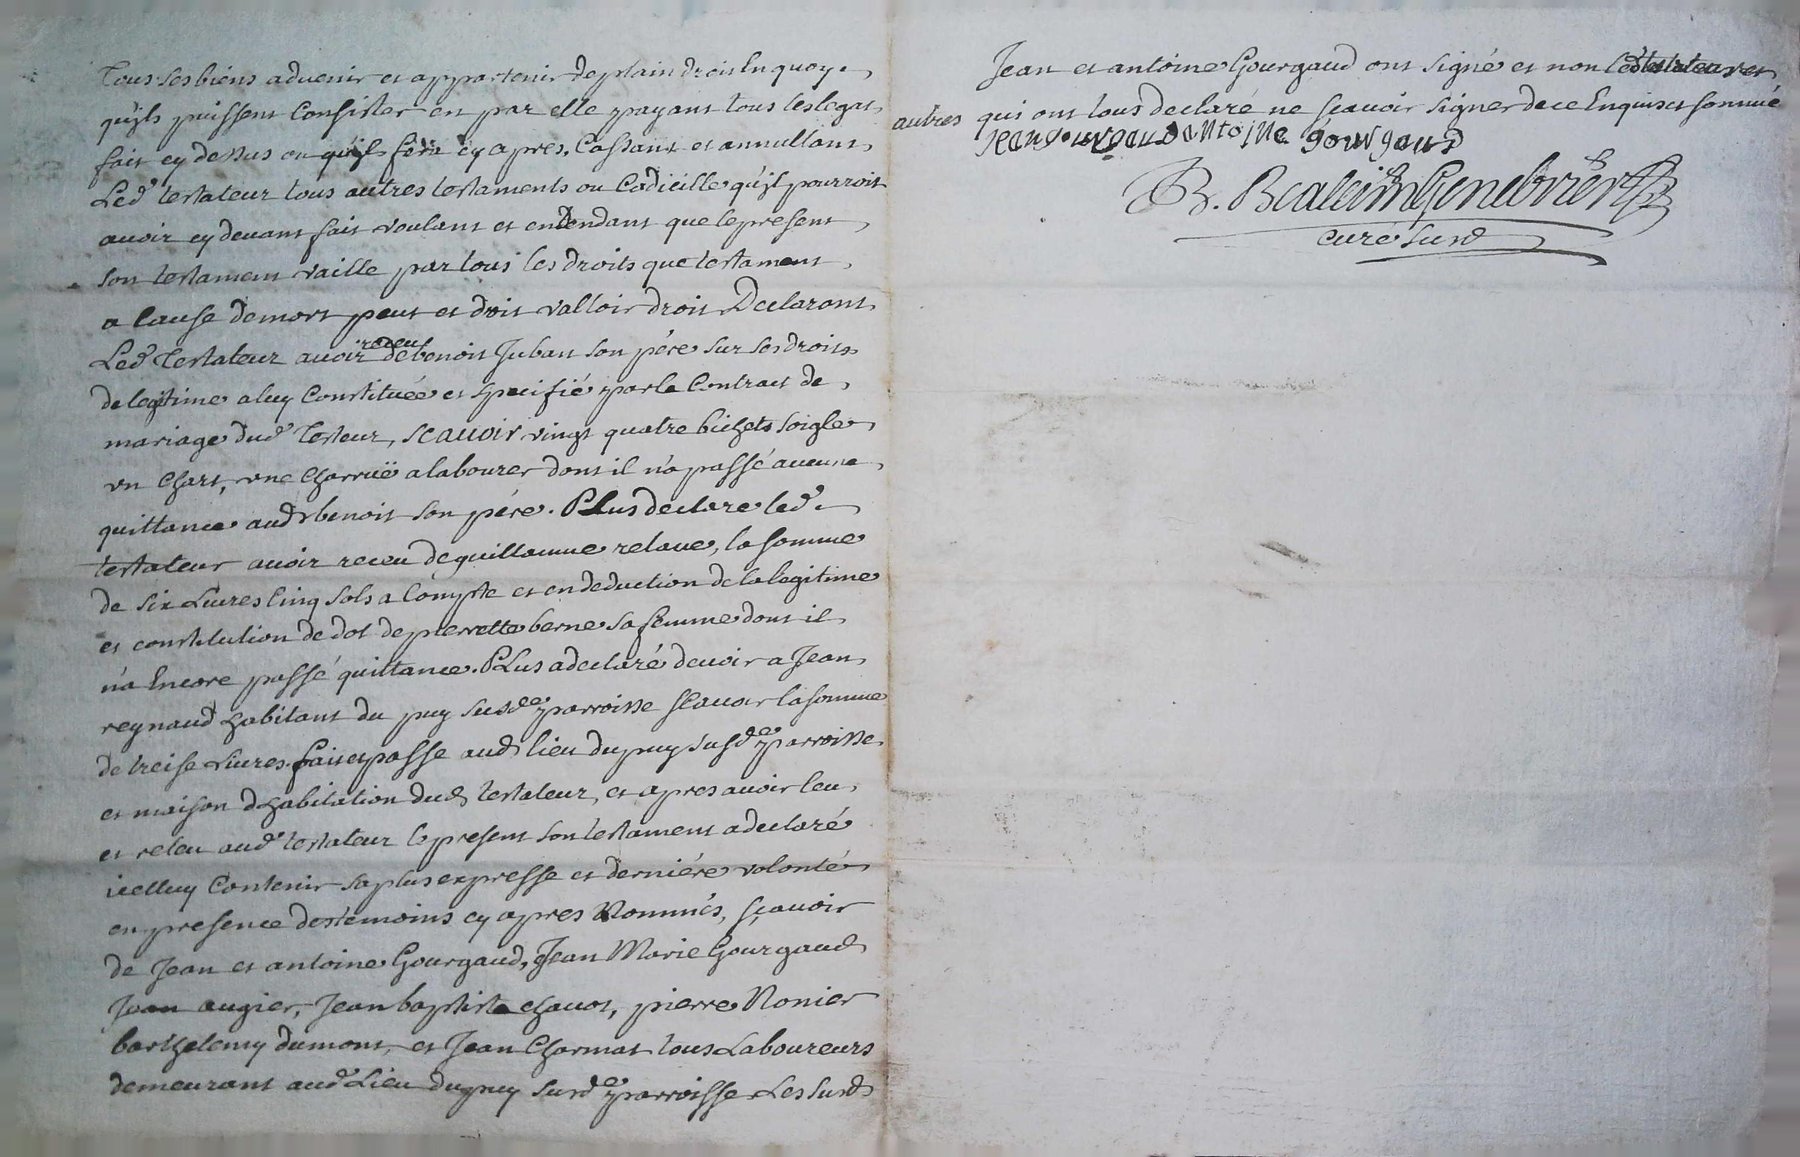 Tous ses biens advenir et appartenir de plain droit En quoy
qu'yls puissent Consister en par elle payant tous les legat
fait cy dessus ou qu'yl fera cy apres, Cassant et annullant
Led testateur tous autres testaments ou Codicille qu'yl pourroit
avoir cy devant fait voulant et entendant que le present
son testament vaille par tous les droits que testament
a Cause de mort peut et doit valloir droit Declarant
Led Testateur avoir receu de benoit Juban son père sur ses droits
de legitime a luy Constituée et specifié par le Contract de
mariage dud Testeur, scavoir vingt quatre bichets soigle
un Chart, une Charruë a labourer dont il n'a passé aucune
quittance aud benoit son père. PLus declare led
testateur avoir receu de guillaume relave, la somme
de six Livres Cinq sols a Compte et en deduction de la legitime
et constitution de dot de pierrette berne sa femme dont il
n'a Encore passé quittance. PLus a declaré devoir a Jean
reynaud habitant du puy susde parroisse scavoir la somme
de treise Livres fait et passe aud lieu du puy susde parroisse
et maison d'habitation dud testateur, et apres avoir leu
et releu aud testateur le present son testament a declaré
icelluy Contenir sa plus expresse et dernière volonté
en presence des témoins cy apres Nommés, sçavoir
de Jean et antoine Gourgaud, Jean Marie Gourgaud
Jean augier, Jean baptiste chavot, pierre Nonier
barthelemy dumont, et Jean Charmat tous Laboureurs
demeurant aud Lieu du puy susde parroisse Les susd
Jean et antoine Gourgaud ont signé et non led testateur et
autres qui ont tous declaré ne sçavoir signer de ce Enquis et sommé
Jean gourgaud antoine gourgaud
curé susd